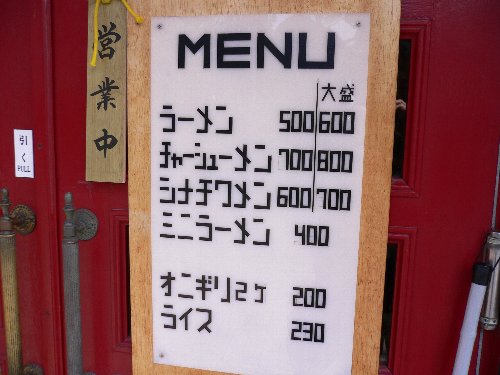 営業中
引く
PULL
MENU
大盛
ラーメン 500 600
チャーシューメン 700 800
シナチクメン 600 700
ミニラーメン 400
オニギリ2ケ 200
ライス 230